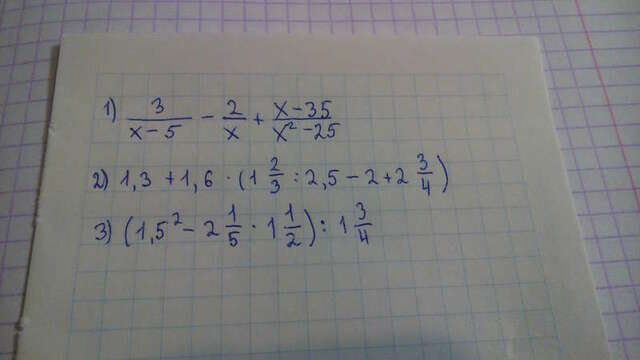 1) 3/(x-5) - 2/x + (x-35)/(x²-25)
2) 1,3 + 1,6 · (1 2/3 : 2,5 - 2 + 2 3/4)
3) (1,5² - 2 1/5 · 1 1/2) : 1 3/4